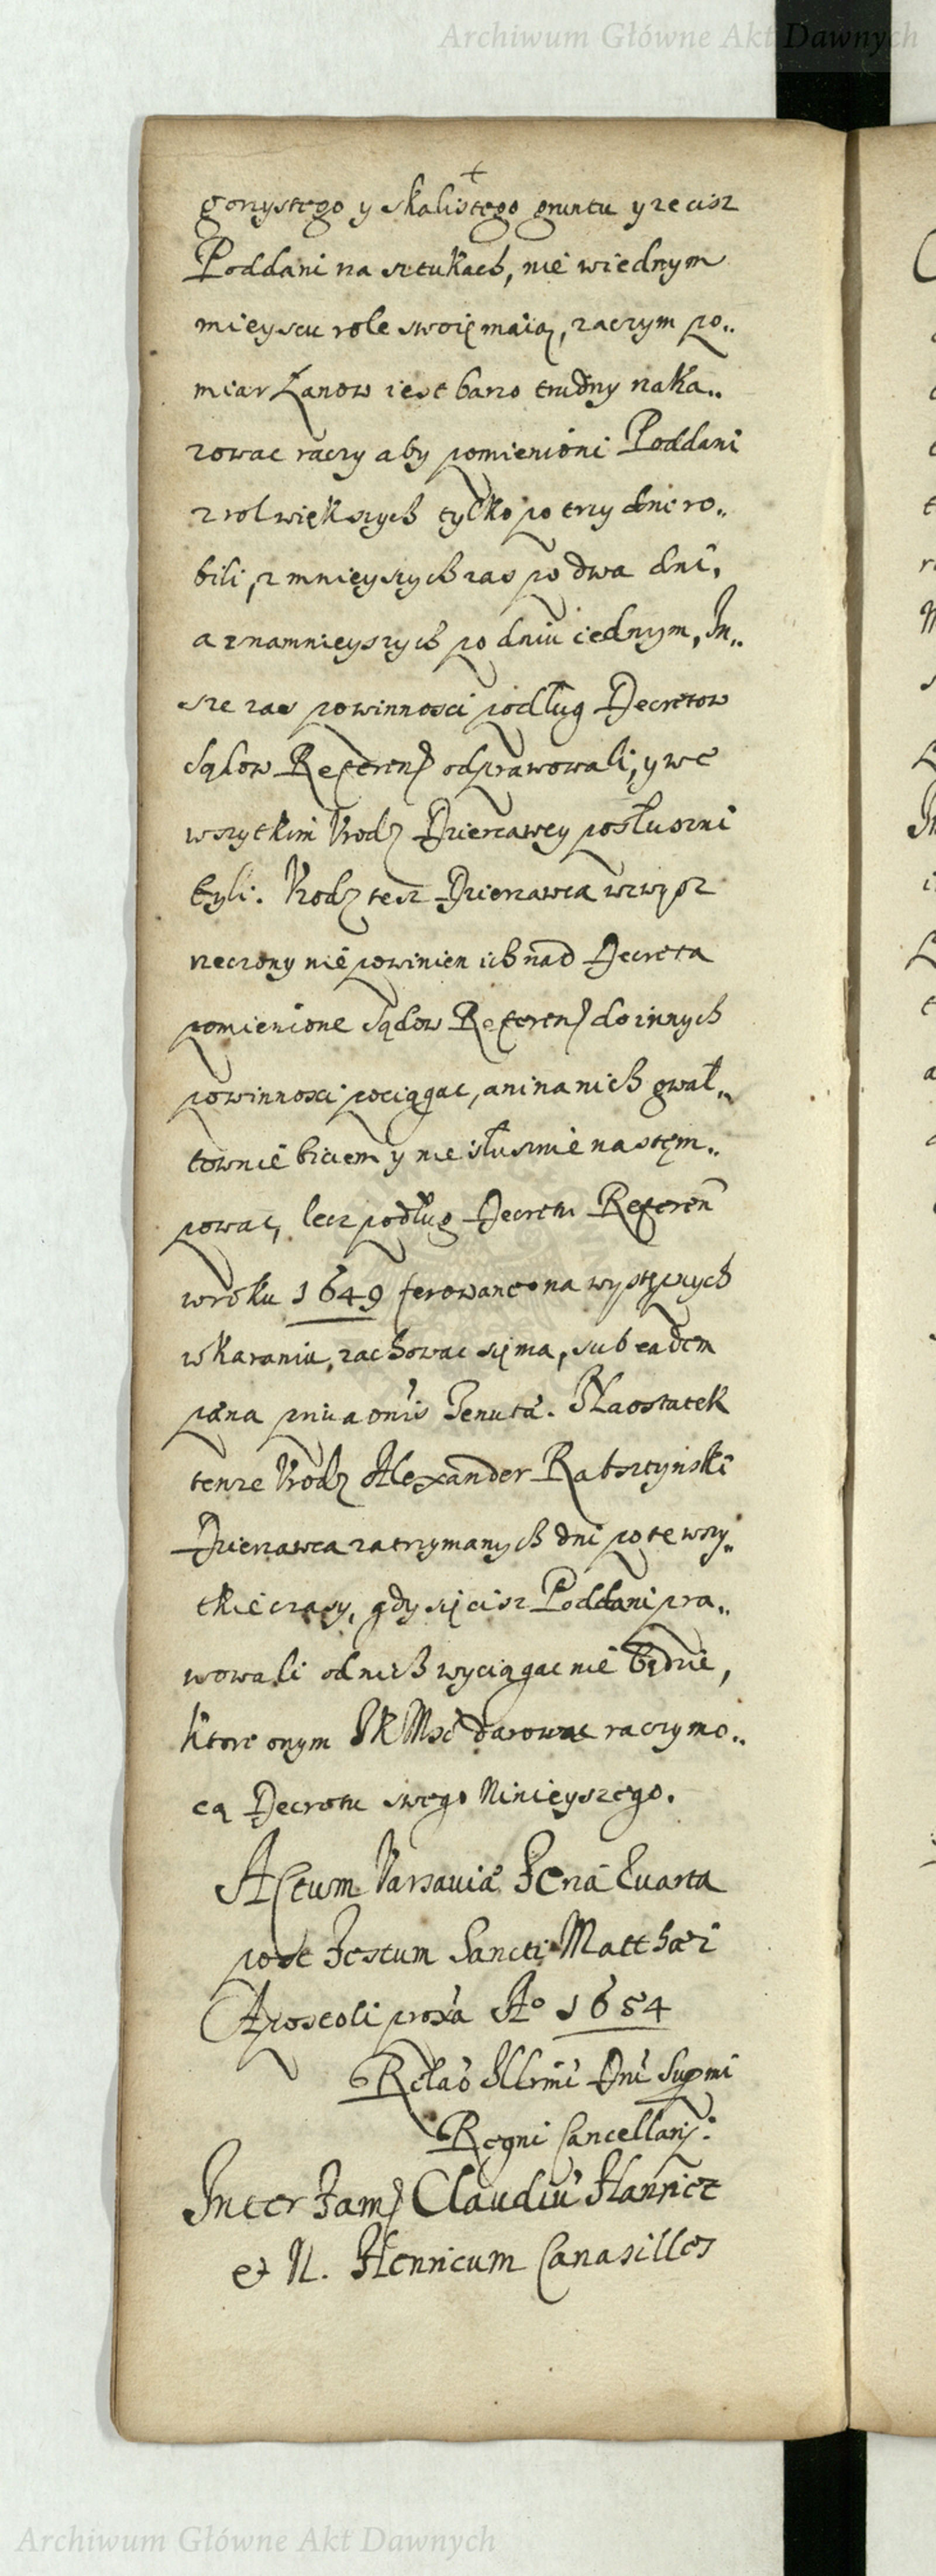 Archiwum Główne Akt Dawnych
gorzystego y skalistego gruntu y ze cisz
Poddani na sztukach, nie wiednym
mieyscu role swoię maią, zaczym po..
miar Łanow iest barzo trudny naka..
zowac raczy aby pomienioni Poddani
z rol większych tylko po trzy dni ro..
bili, z mnieyszych zas po dwa dni,
a z namnieyszych po dniu iednym, In..
sze zas powinnosci podług Decretow
Sądow Referen odprawowali, y we
wszytkim Urodz Dzierzawcy posłuszni
byli. Urodz tesz Dzierzawca wzwysz
rzeczony nie powinien ich nad Decreta
pomienione Sądow Referen do innych
powinnosci pociągac, ani na nich gwał..
townie biciem y nie słusznie nastęm..
powac, lecz podług Decretu Referen
w roku 1649 ferowane° na występnych
w karaniu, zachowac się ma, sub eadem
pæna priuaonis Tenutæ. Na ostatek
tenze Urodz Alexander Rabsztynski
Dzierzawca zatrzymanych dni po te wszy..
tkie czasy, gdy się cisz Poddani pra..
wowali od nich wyciągac nie będzie,
ktore onym JKMsc darowac raczy mo..
cą Decretu swego Ninieyszego.
Actum Varsauiæ Feria Quarta
post Festum Sancti Matthæi
Apostoli proxa A° 1654
Relao Illrmi Dni Supmi
Regni Cancellarij:
Inter Fam Claudiu Hanricz
et N. Henricum Canasilles
Archiwum Główne Akt Dawnych